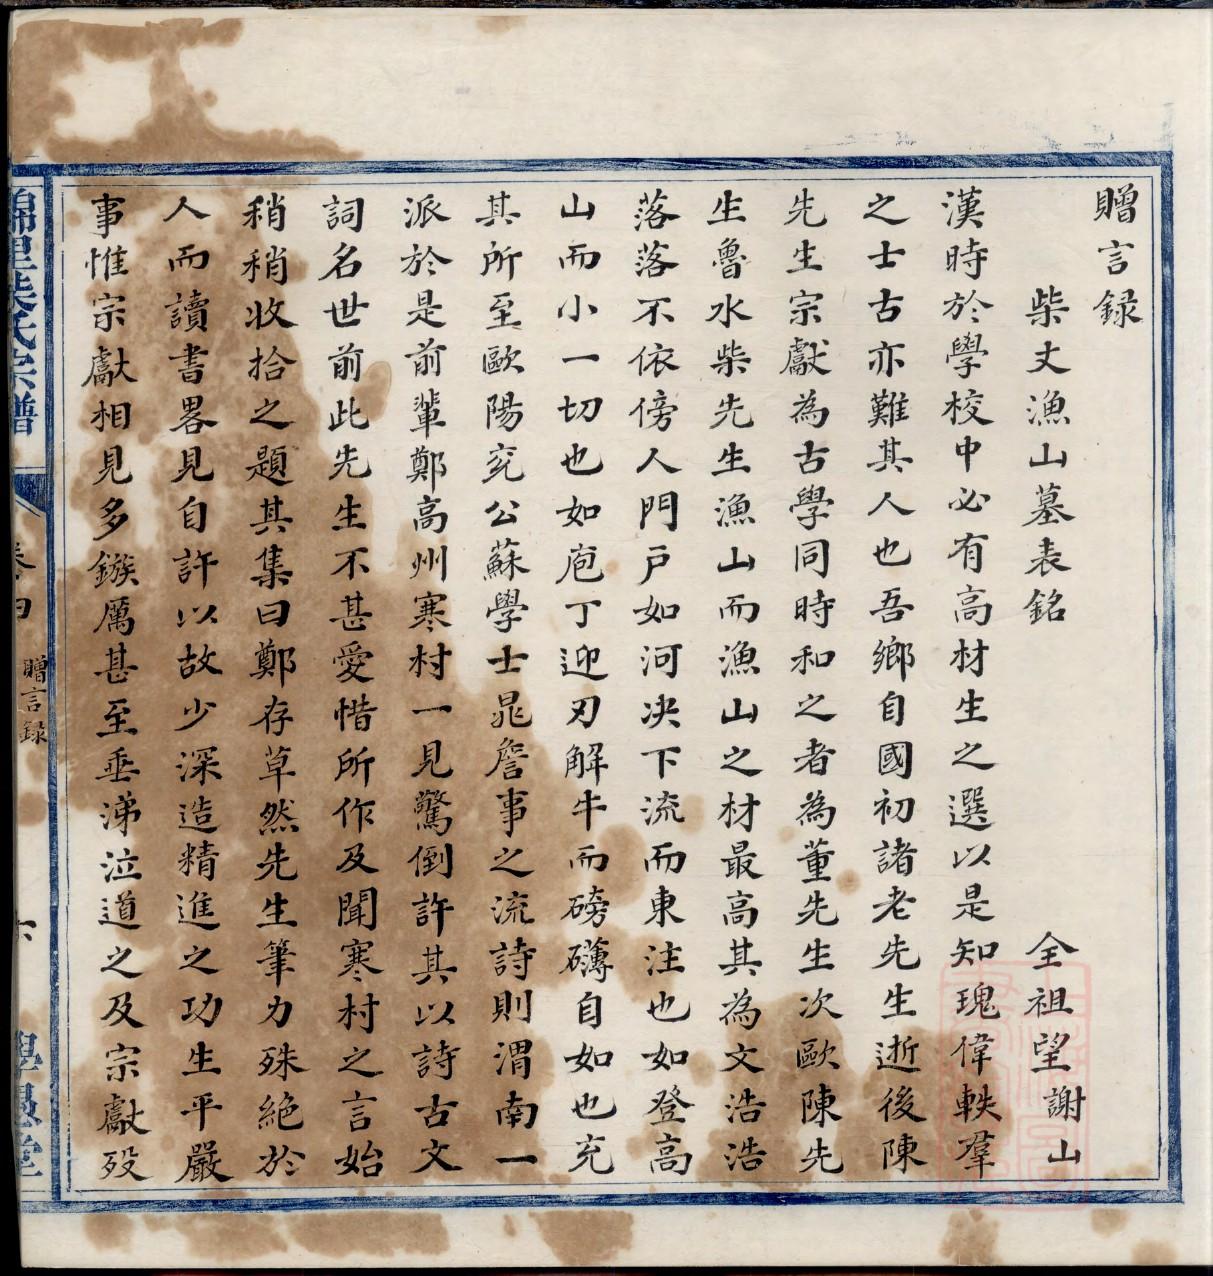 贈言録
柴丈漁山墓表銘
全祖望謝山
漢時於學校中必有高材生之選以是知瑰偉軼羣
之士古亦難其人也吾鄉自國初諸老先生逝後陳
先生宗獻為古學同時和之者為董先生次歐陳先
生魯水柴先生漁山而漁山之材最高其為文浩浩
落落不依傍人門戶如河决下流而東注也如登高
山而小一切也如庖丁迎刃解牛而磅礴自如也充
其所至歐陽兖公蘇學士晁詹事之流詩則渭南一
派於是前輩鄭高州寒村一見驚倒許其以詩古文
詞名世前此先生不甚愛惜所作及聞寒村之言始
稍稍收拾之題其集曰鄭存草然先生筆力殊絶於
人而讀書畧見自許以故少深造精進之功生平嚴
事惟宗獻相見多鏃厲甚至垂涕泣道之及宗獻歿
柴氏宗譜
贈言録